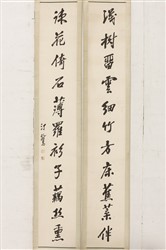 深樹留雲細竹方床蕉葉伴
疎花倚石薄羅衫子藕絲熏